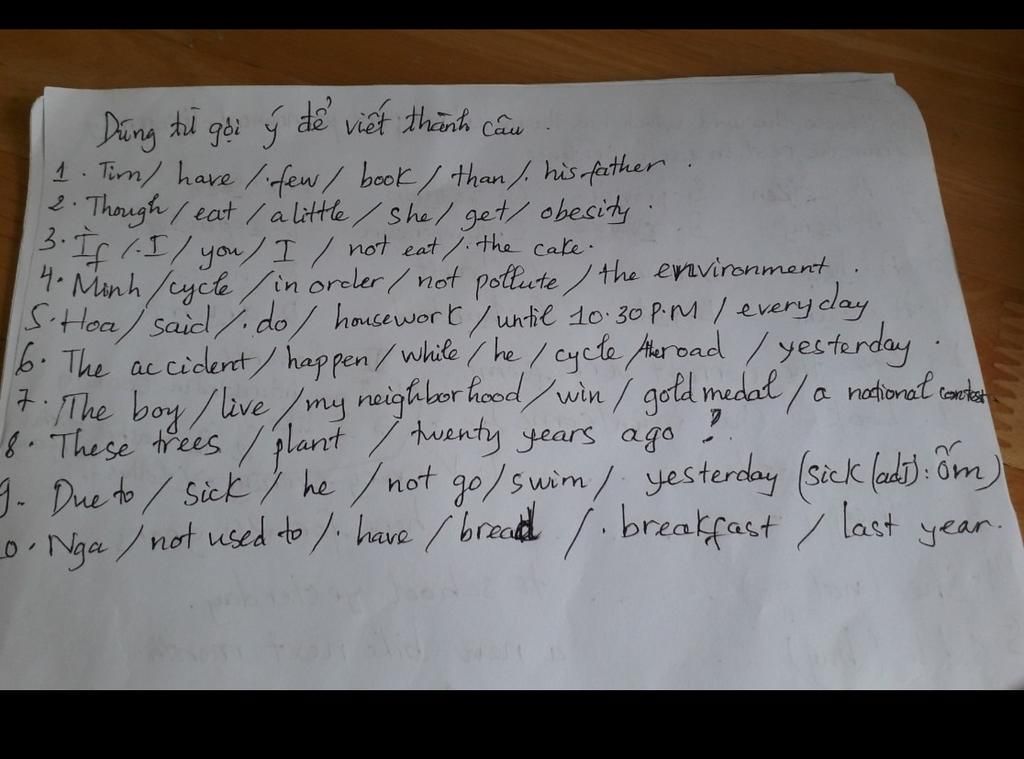 Dùng từ gợi ý để viết thành câu.
1. Tim/ have / few / book / than / his father.
2. Though / eat / a little / she / get / obesity.
3. If / I / you / I / not eat / the cake.
4. Minh / cycle / in order / not pollute / the environment.
5. Hoa / said / do / housework / until 10.30 P.M / every day
6. The accident / happen / while / he / cycle / the road / yesterday.
7. The boy / live / my neighborhood / win / gold medal / a national contest.
8. These trees / plant / twenty years ago ?
9. Due to / sick / he / not go / swim / yesterday (sick (adj): ốm)
0. Nga / not used to / have / bread / breakfast / last year.